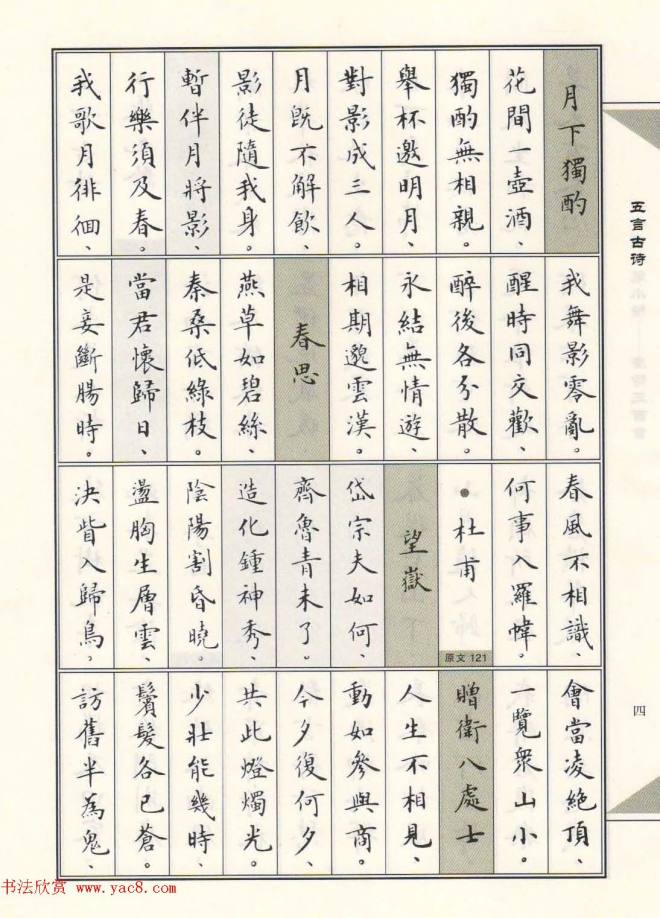 五言古诗
四
月下獨酌
花間一壺酒、
獨酌無相親。
舉杯邀明月、
對影成三人。
月既不解飲、
影徒隨我身。
暫伴月將影、
行樂須及春。
我歌月徘徊、
我舞影零亂。
醒時同交歡、
醉後各分散。
永結無情遊、
相期邈雲漢。
春思
燕草如碧絲、
秦桑低綠枝。
當君懷歸日、
是妾斷腸時。
春風不相識、
何事入羅幃。
●杜甫
原文 121
望嶽
岱宗夫如何、
齊魯青未了。
造化鍾神秀、
陰陽割昏曉。
盪胸生層雲、
決眥入歸鳥。
會當凌絶頂、
一覽衆山小。
贈衛八處士
人生不相見、
動如參與商。
今夕復何夕、
共此燈燭光。
少壯能幾時、
鬢髮各已蒼。
訪舊半為鬼、
书法欣赏 www.yac8.com